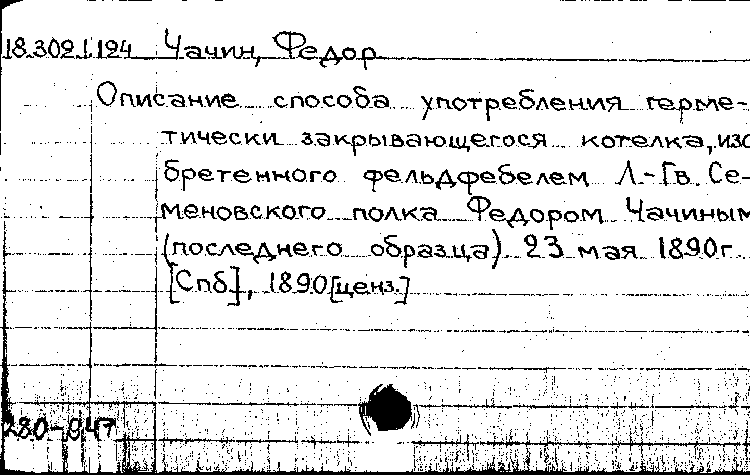 18.309.1.194 Чачин, Федор
Описание способа употребления герме-
тически закрывающегося котелка, изо
бретенного фельдфебелем Л.-Гв. Се-
меновского полка Федором Чачиным
(последнего образца) 23 мая 1890г.
[Спб.], 1890[ценз.]
280-947